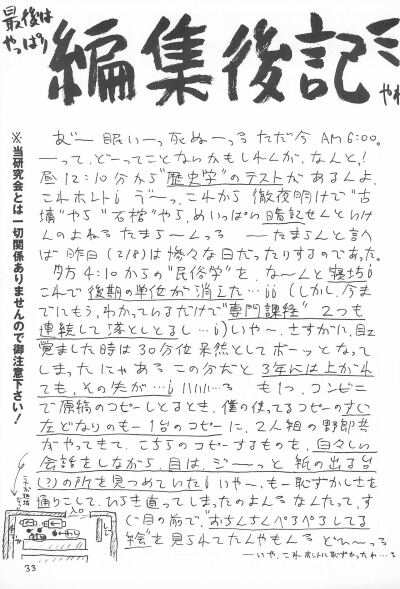 最後は
やっぱり
編集後記
※当研究会とは一切関係ありませんので御注意下さい!
あ゛ー 眠いーっ 死ぬーっる ただ今 AM 6:00。
ーって、どーってことないかもしれんが、なんと、!
昼12:10分から“歴史学”のテストがあるんよ、
これホント! う゛ーっ、これから 徹夜明けで“古
墳”やら“石棺”やら、めいっぱい暗記せんといけ
んのよねる たまらーんっる ーたまらんと言へ
ば 昨日(2/18)は惨々な日だったりするのであった。
夕方4:10からの“民俗学”を、なーんと寝坊!
これで後期の単位が消えた…!! (しかし、今ま
でにもう、わかっているだけで“専門課程”2つも
連続して落としとるし…!) いやー、さすがに、目
覚ました時は30分位呆然としてボーッとなって
しまったにゃある この分だと3年には上がれ
ても、その先が…! も1つ、コンビニ
で原稿のコピーしとるとき、僕の使ってるコピーのすぐ
左どなりのもー1台のコピーに、2人組の野郎共
がやってきて、こちらのコピーするものを、白々しい
会話をしながら、目は、ジーーっと 紙の出る台
(?)の所を見つめていた! いやー、もー恥ずかしさを
通りこして、ひらき直ってしまったのよんる なんたって、す
ぐ目の前で、“おちんちんぺろぺろしてる
絵”を見られてたんやもんる どんーっる
ーいや、これホントに恥ずかったわ…る
入口
33